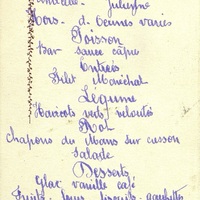 Julienne
Hors - d'oeuvres variés
Poisson
Bar sauce câpre
Entrées
Filet Maréchal
Légume
Haricots verts veloutés
Rot
Chapons du Mans sur cresson
Salade
Desserts
Glace vanille café
Fruits - biscuits - gaufrettes